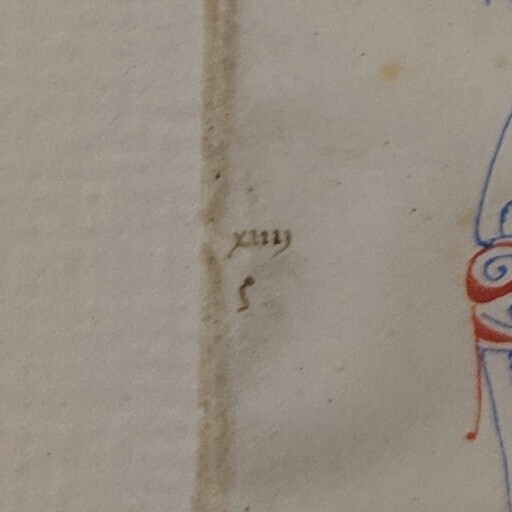 xiiij
ſ